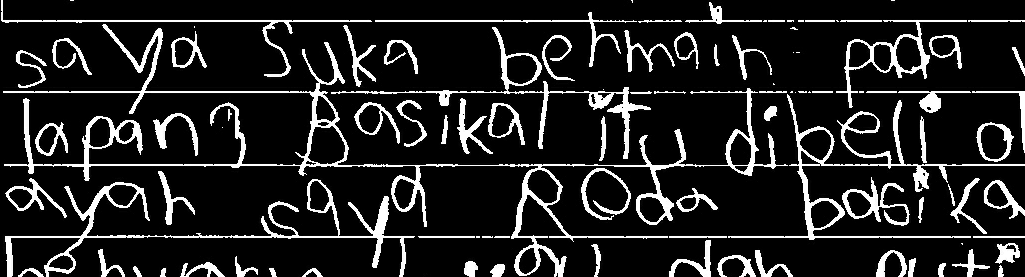 saya Suka behmain pada
lapang Basikal itu dibeli ol
ayah saya Roda basika
dan